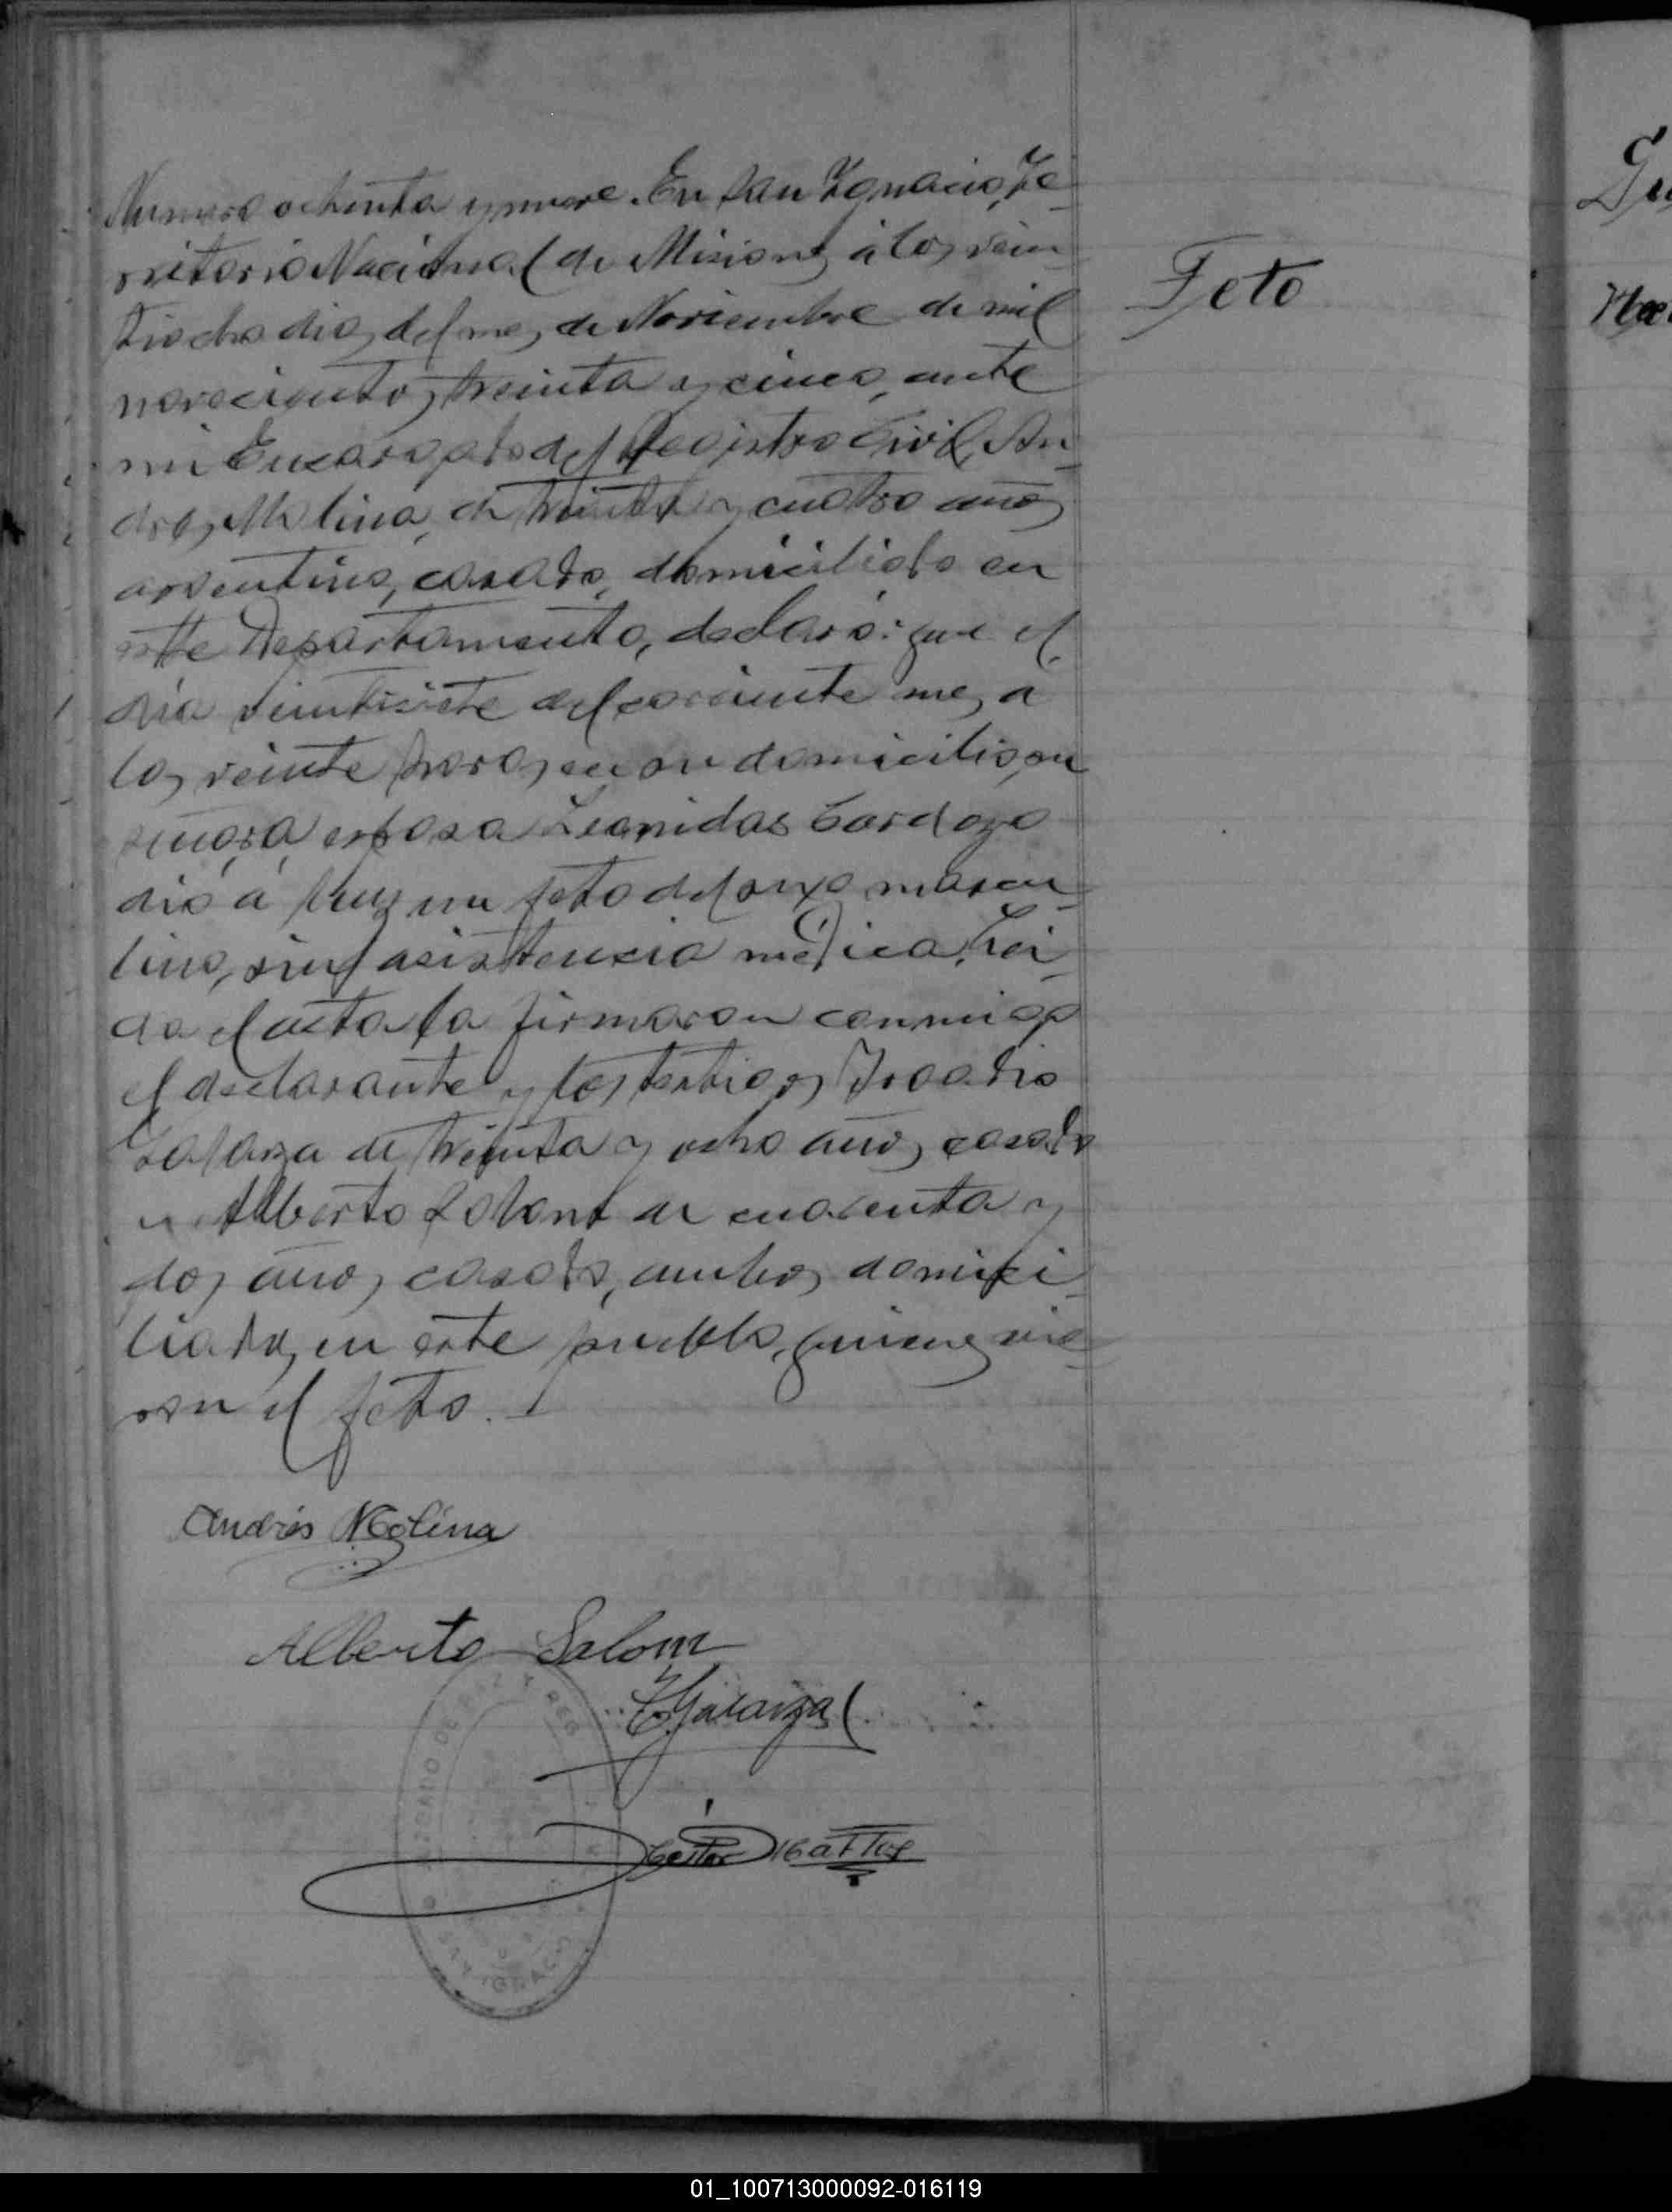 Numero ochenta y nueve. En San Ignacio, Te
rritorio Nacional de Misiones, á los vein
tiocho dias del mes de Noviembre de mil
novecientos treinta y cinco, ante
mi Encargado del Registro Civil, An
dres Molina, de treinta y cuatro años
argentino, casado, domiciliado en
este Departamento, declaró: que el
dia veintisiete del corriente mes a
las veinte horas, en su domicilio, su
señora esposa Leonidas Cardozo
dió á luz un feto del sexo mascu
lino, sin asistencia médica. Lei
da el acta la firmaron conmigo
el declarante y los testigos
de treinta y ocho años, casado
y Alberto de cuarenta y
dos años, casado, ambos domici
liados en este pueblo, quienes vie
ron el feto.
Feto
Andrés Molina
Alberto Salom
JUZGADO DE PAZ Y REG
SAN IGNACIO
01_100713000092-016119